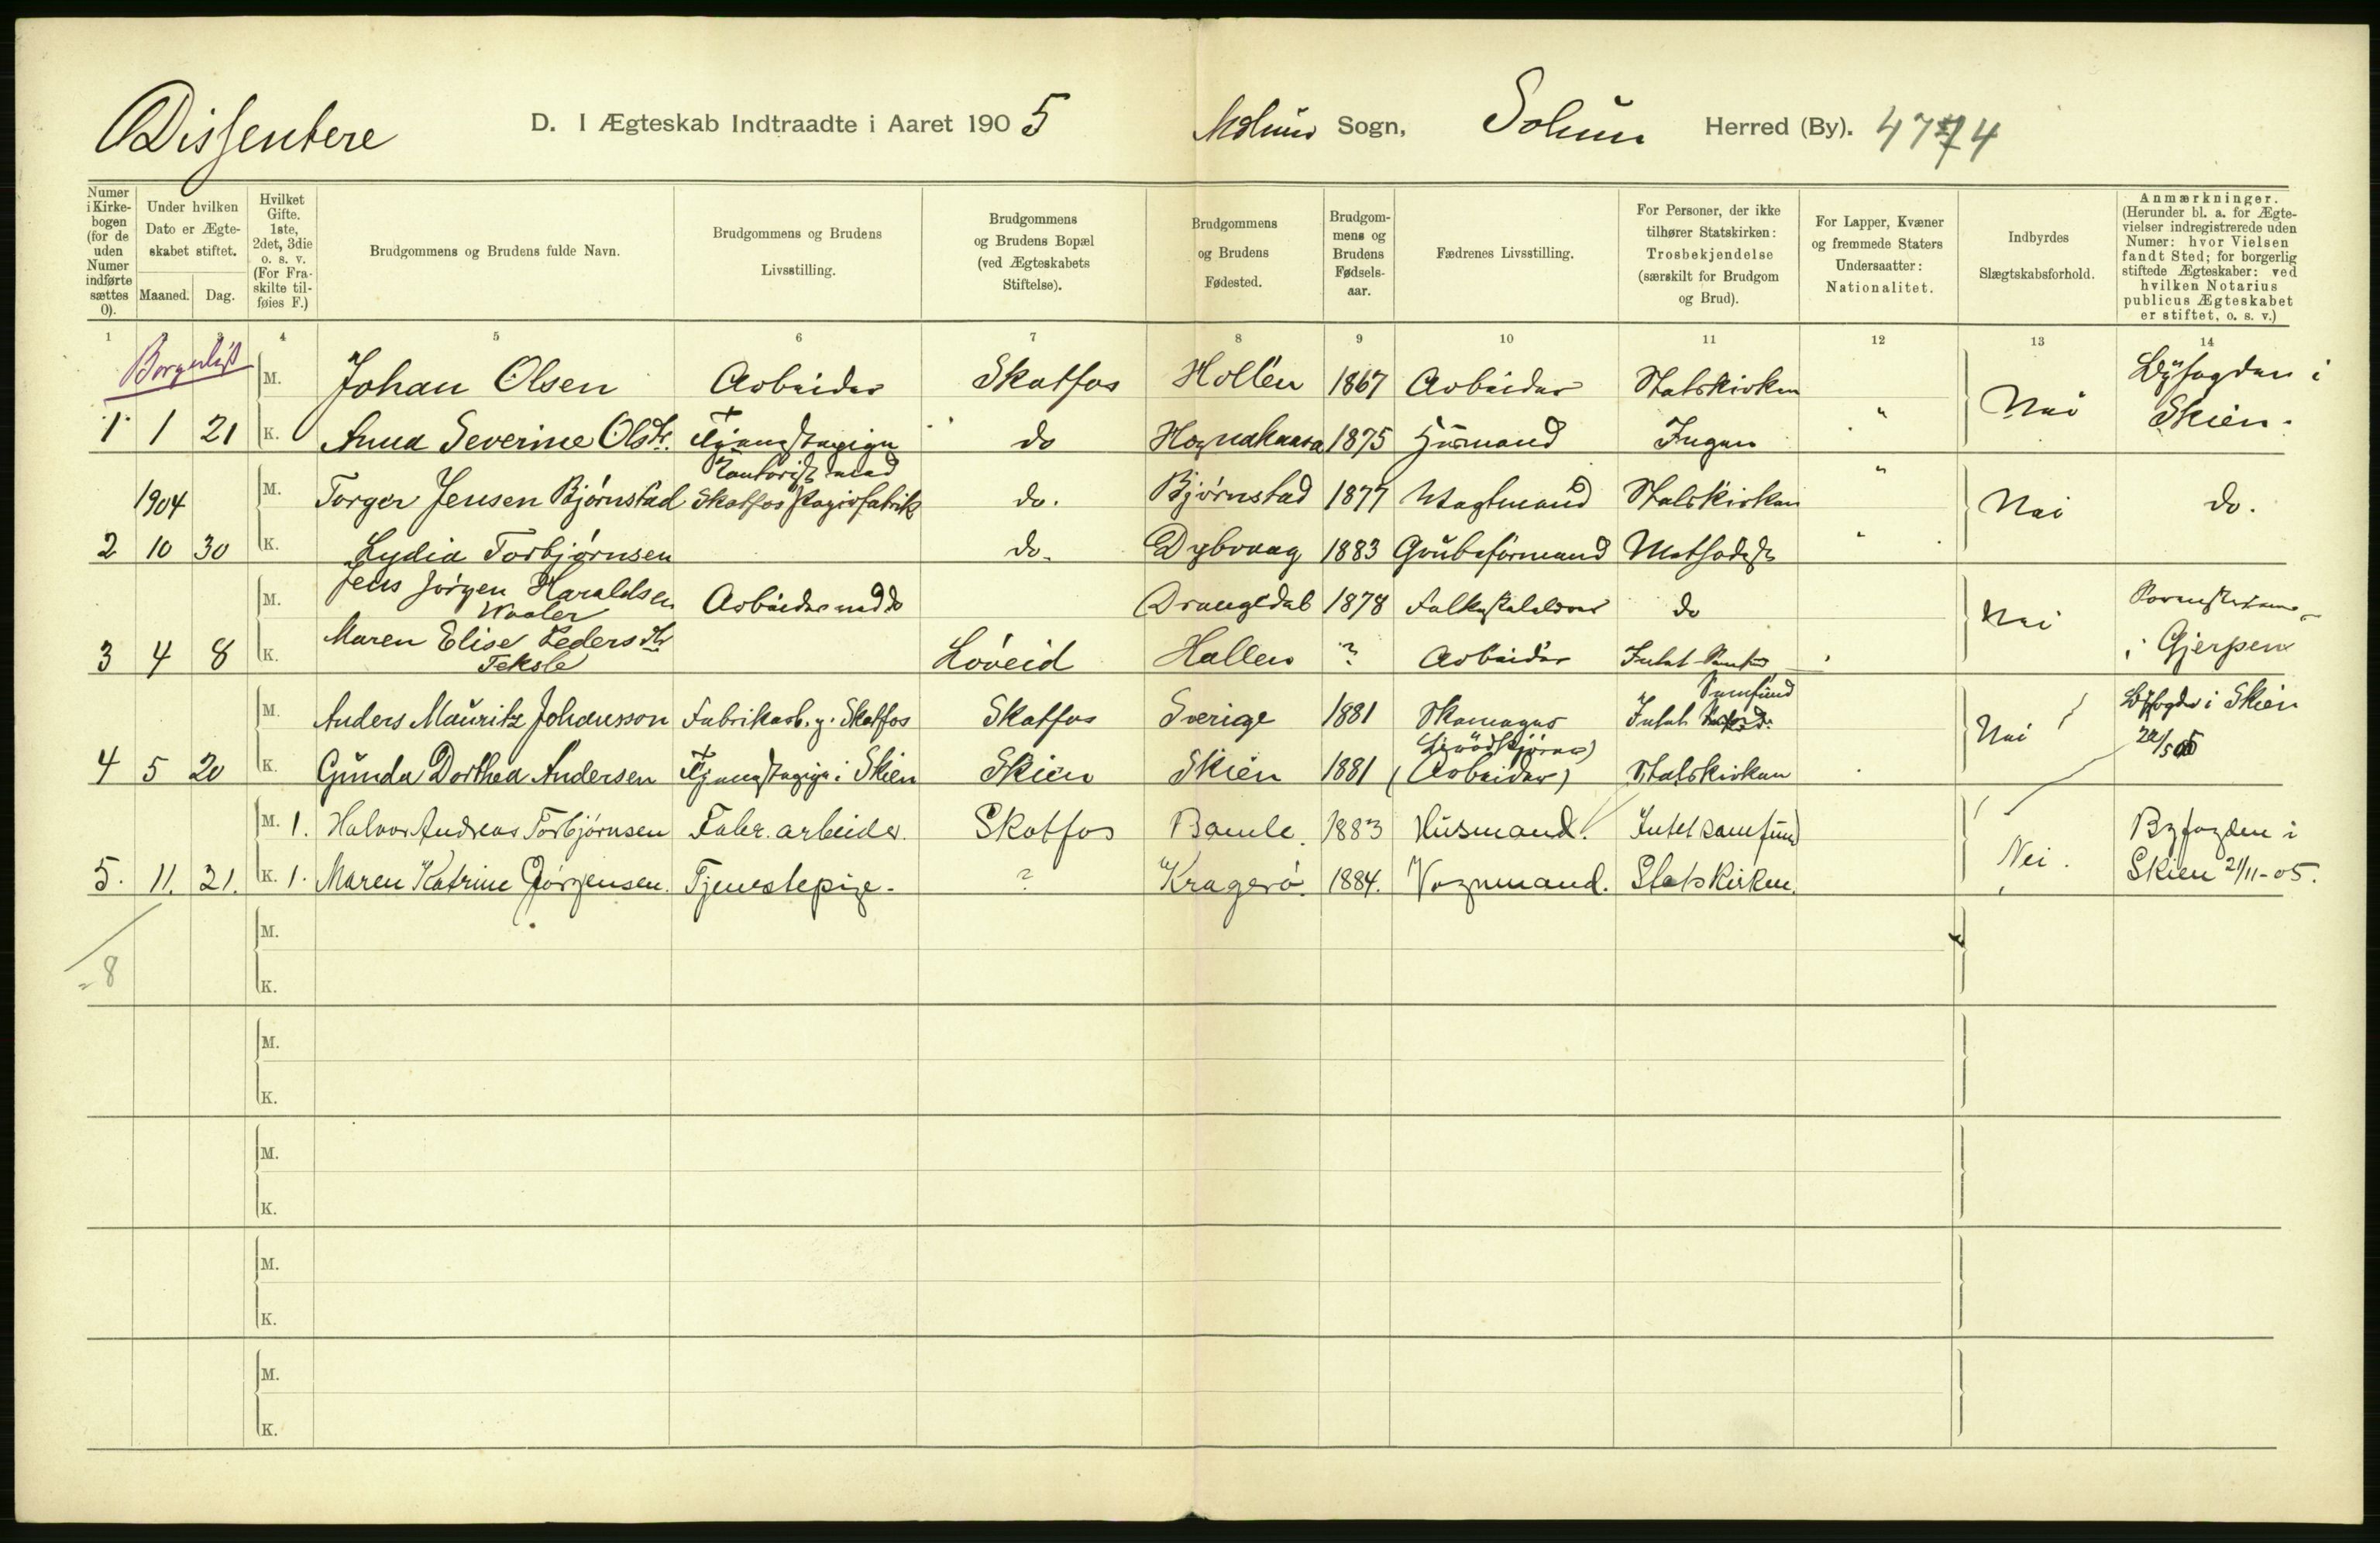 Dissentere
D. I Ægteskab Indtraadte i Aaret 1905
Sogn,
Solum
Herred (By).
4774
Numer i Kirke- bogen (for de uden Numer indførte sættes 0).
Under hvilken Dato er Ægte- skabet stiftet.
Maaned.
Dag.
Hvilket Gifte. 1ste, 2det, 3die o. s. v. (For Fra- skilte til- føies F.)
Brudgommens og Brudens fulde Navn.
Brudgommens og Brudens Livsstilling.
Brudgommens og Brudens Bopæl (ved Ægteskabets Stiftelse).
Brudgommens og Brudens Fødested.
Brudgom- mens og Brudens Fødsels- aar.
Fædrenes Livsstilling.
For Personer, der ikke tilhører Statskirken: Trosbekjendelse (særskilt for Brudgom og Brud).
For Lapper, Kvæner og fremmede Staters Undersaatter: Nationalitet.
Indbyrdes Slægtskabsforhold.
Anmærkninger. (Herunder bl. a. for Ægte- vielser indregistrerede uden Numer: hvor Vielsen fandt Sted; for borgerlig stiftede Ægteskaber: ved hvilken Notarius publicus Ægteskabet er stiftet, o. s. v.)
1 3 4 5 6 7 8 9 10 11 12 13 14
Borgerligt
M. Johan Olsen Arbeider Skotfos Hollen 1867 Arbeider Statskirken Nei Byfogden i Skien.
1 1 21 K. Anna Severine Olsdtr. Tjenestepige do 1875 Husmand Ingen "
1904 M. Torger Jensen Bjørnstad Kontorist med Skotfos Papirfabrik do. Bjørnstad 1877 Vagtmand Statskirken " Nei do.
2 10 30 K. Lydia Torbjørnsen do. Dybvaag 1883 Grubeformand Methodist "
M. Jens Jørgen Haraldsen Waaler Arbeider ved do Drangedal 1878 do Nei i Gjerpen
3 4 8 K. Maren Elise Pedersdtr Teksle Løveid Hollen ? Arbeider
M. Anders Mauritz Johansson Fabrikarb. p. Skotfos Skotfos Sverige 1881 Skomager Samfund Nei Byfogden i Skien 20/5 05
4 5 20 K. Gunda Dorthea Andersen Tjenestepige i Skien Skien Skien 1881 (Arbeider) Statskirken
M. 1. Halvor Andreas Torbjørnsen Fabr. arbeider. Skotfos Bamle. 1883 Husmand. Intet samfund Nei. Byfogden i Skien 21/11-05.
5. 11. 21. K. 1. Maren Katrine Jørgensen. Tjenestepige. ? Kragerø. 1884. Vognmand. Statskirken.
M.
8
K.
M.
K.
M.
K.
M.
K.
M.
K.